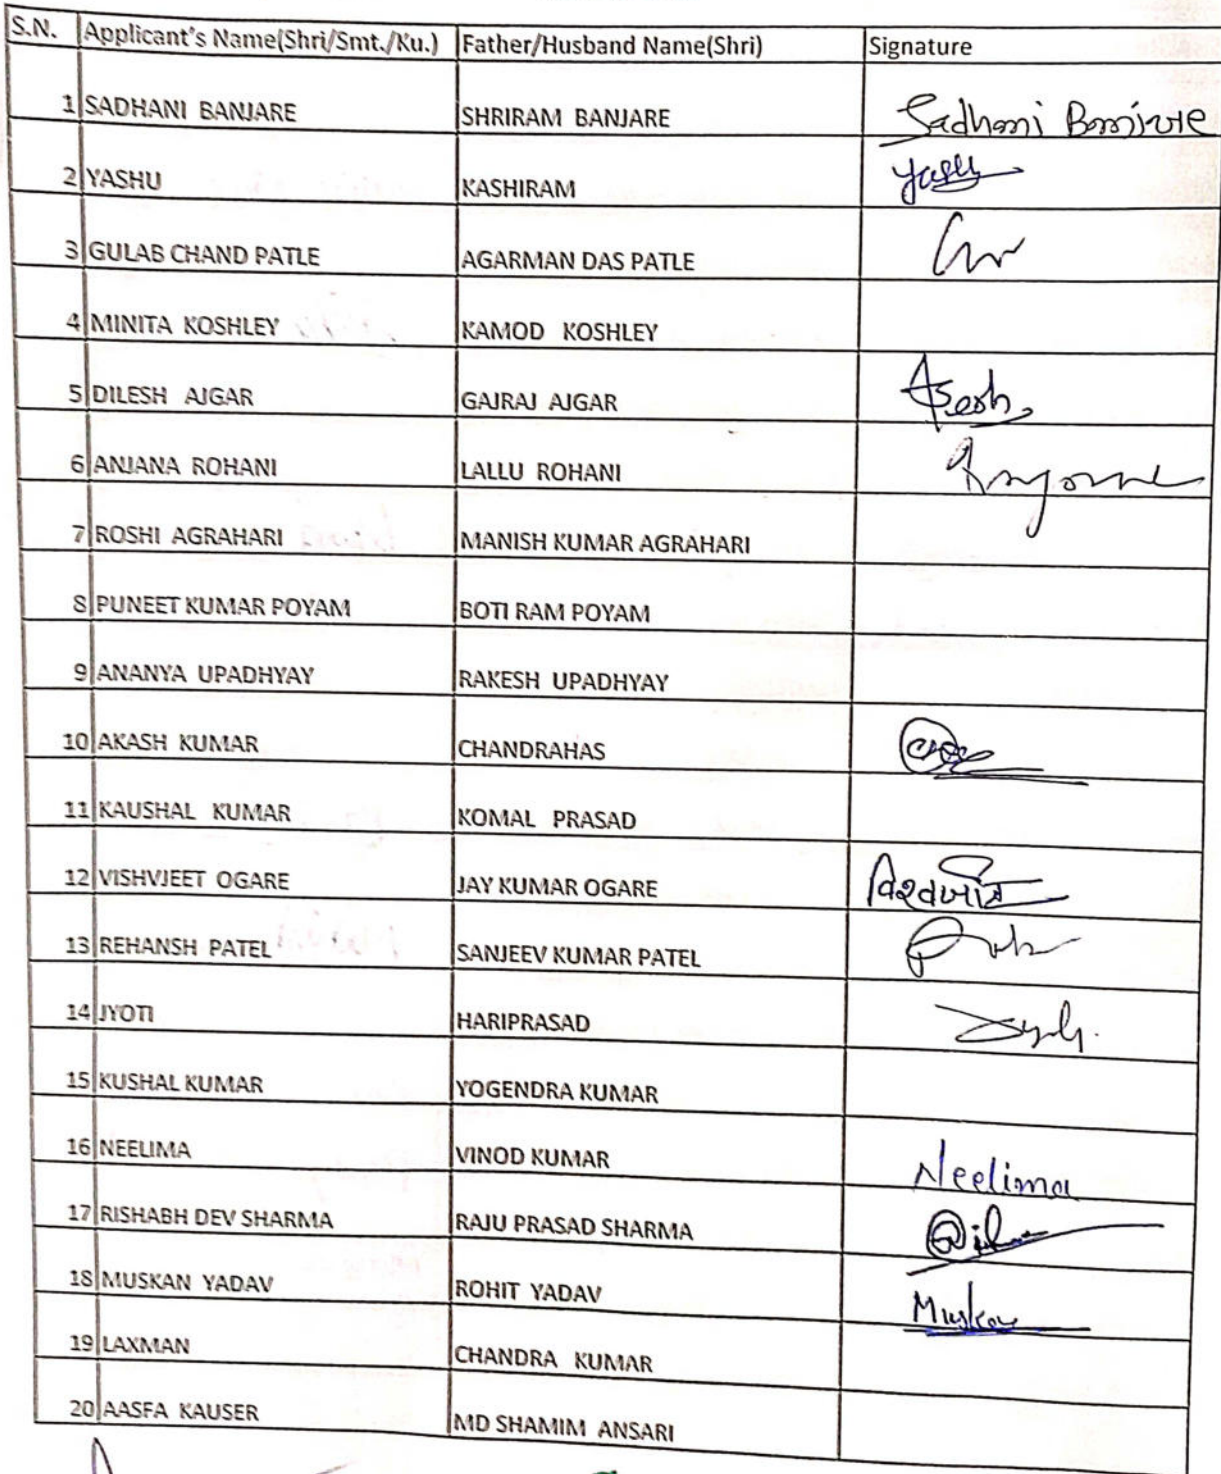 S.N. Applicant's Name(Shri/Smt./Ku.) Father/Husband Name(Shri) Signature
1 SADHANI BANJARE SHRIRAM BANJARE Sadhani Banjare
2 YASHU KASHIRAM Yashu
3 GULAB CHAND PATLE AGARMAN DAS PATLE
4 MINITA KOSHLEY KAMOD KOSHLEY
5 DILESH AJGAR GAJRAJ AJGAR
6 ANJANA ROHANI LALLU ROHANI
7 ROSHI AGRAHARI MANISH KUMAR AGRAHARI
8 PUNEET KUMAR POYAM BOTI RAM POYAM
9 ANANYA UPADHYAY RAKESH UPADHYAY
10 AKASH KUMAR CHANDRAHAS
11 KAUSHAL KUMAR KOMAL PRASAD
12 VISHVJEET OGARE JAY KUMAR OGARE विश्वजीत
13 REHANSH PATEL SANJEEV KUMAR PATEL
14 JYOTI HARIPRASAD
15 KUSHAL KUMAR YOGENDRA KUMAR
16 NEELIMA VINOD KUMAR Neelima
17 RISHABH DEV SHARMA RAJU PRASAD SHARMA
18 MUSKAN YADAV ROHIT YADAV Muskan
19 LAXMAN CHANDRA KUMAR
20 AASFA KAUSER MD SHAMIM ANSARI